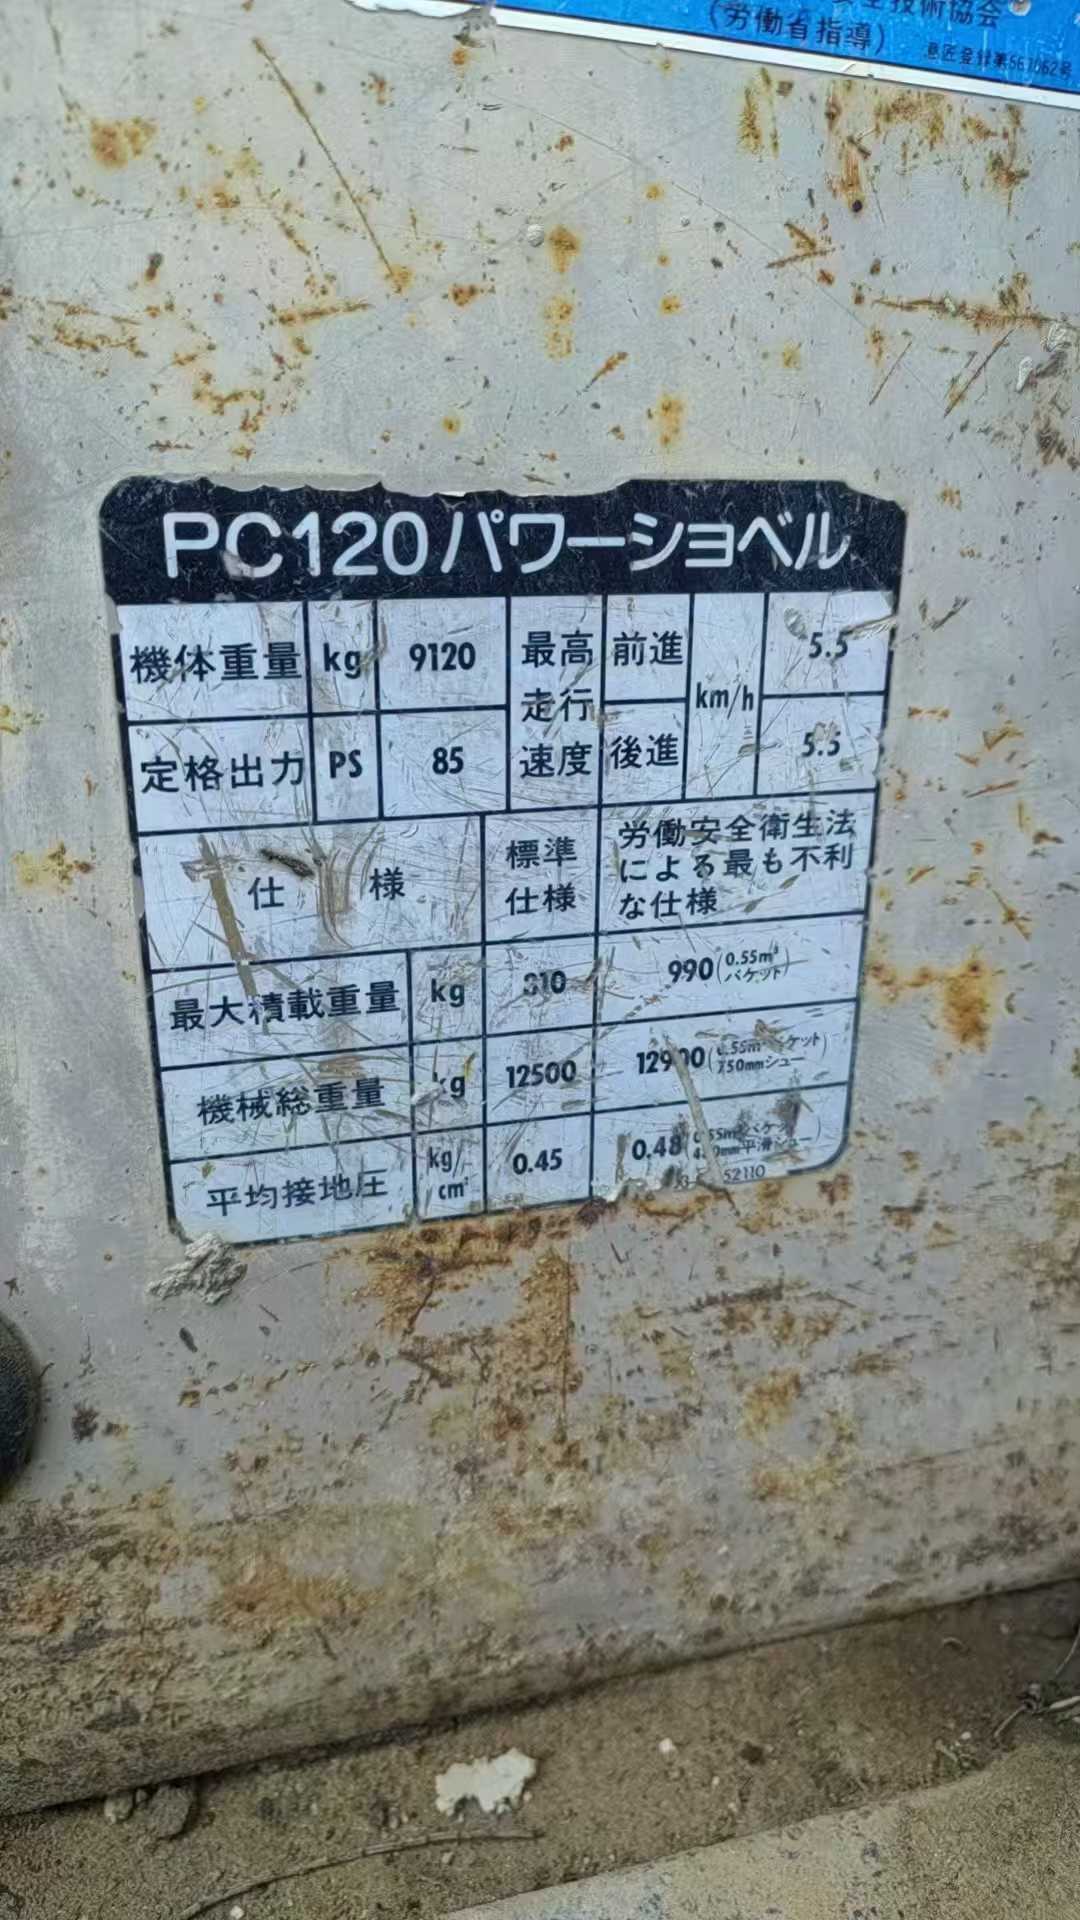 安全技術協会
(労働省指導)
意匠登録第563062号
PC120パワーショベル
機体重量 kg 9120
最高走行速度 km/h
前進 5.5
後進 5.5
定格出力 PS 85
仕様
標準
仕様
労働安全衛生法
による最も不利
な仕様
最大積載重量 kg 810 990(0.55m³
バケット)
機械総重量 kg 12500 12900(0.55m³バケット
750mmシュー)
平均接地圧 kg/cm² 0.45 0.48(0.55m³バケット
平滑シュー)
52110